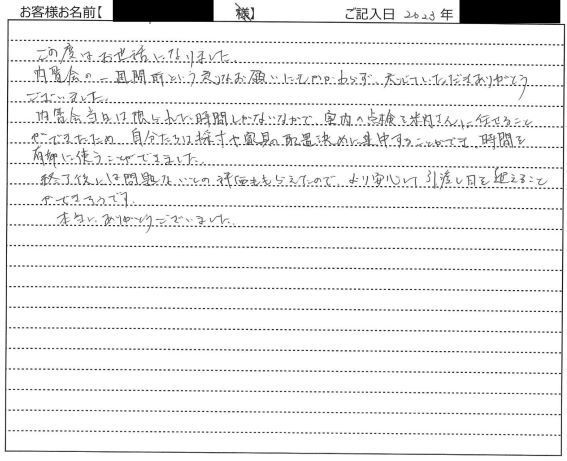 お客様お名前【 様】 ご記入日 2023 年
この度はお世話になりました。
内覧会の一週間前という急なお願いにもかかわらず、対応していただきありがとう
ございました。
内覧会当日は限られた時間しかないなかで、室内の点検を米内さんに任せること
ができたため、自分たちは採寸や家具の配置決めに集中することができ、時間を
有効に使うことができました。
終了後には問題ないとの評価ももらえたので、より安心して引渡し日を迎えること
ができそうです。
本当にありがとうございました。